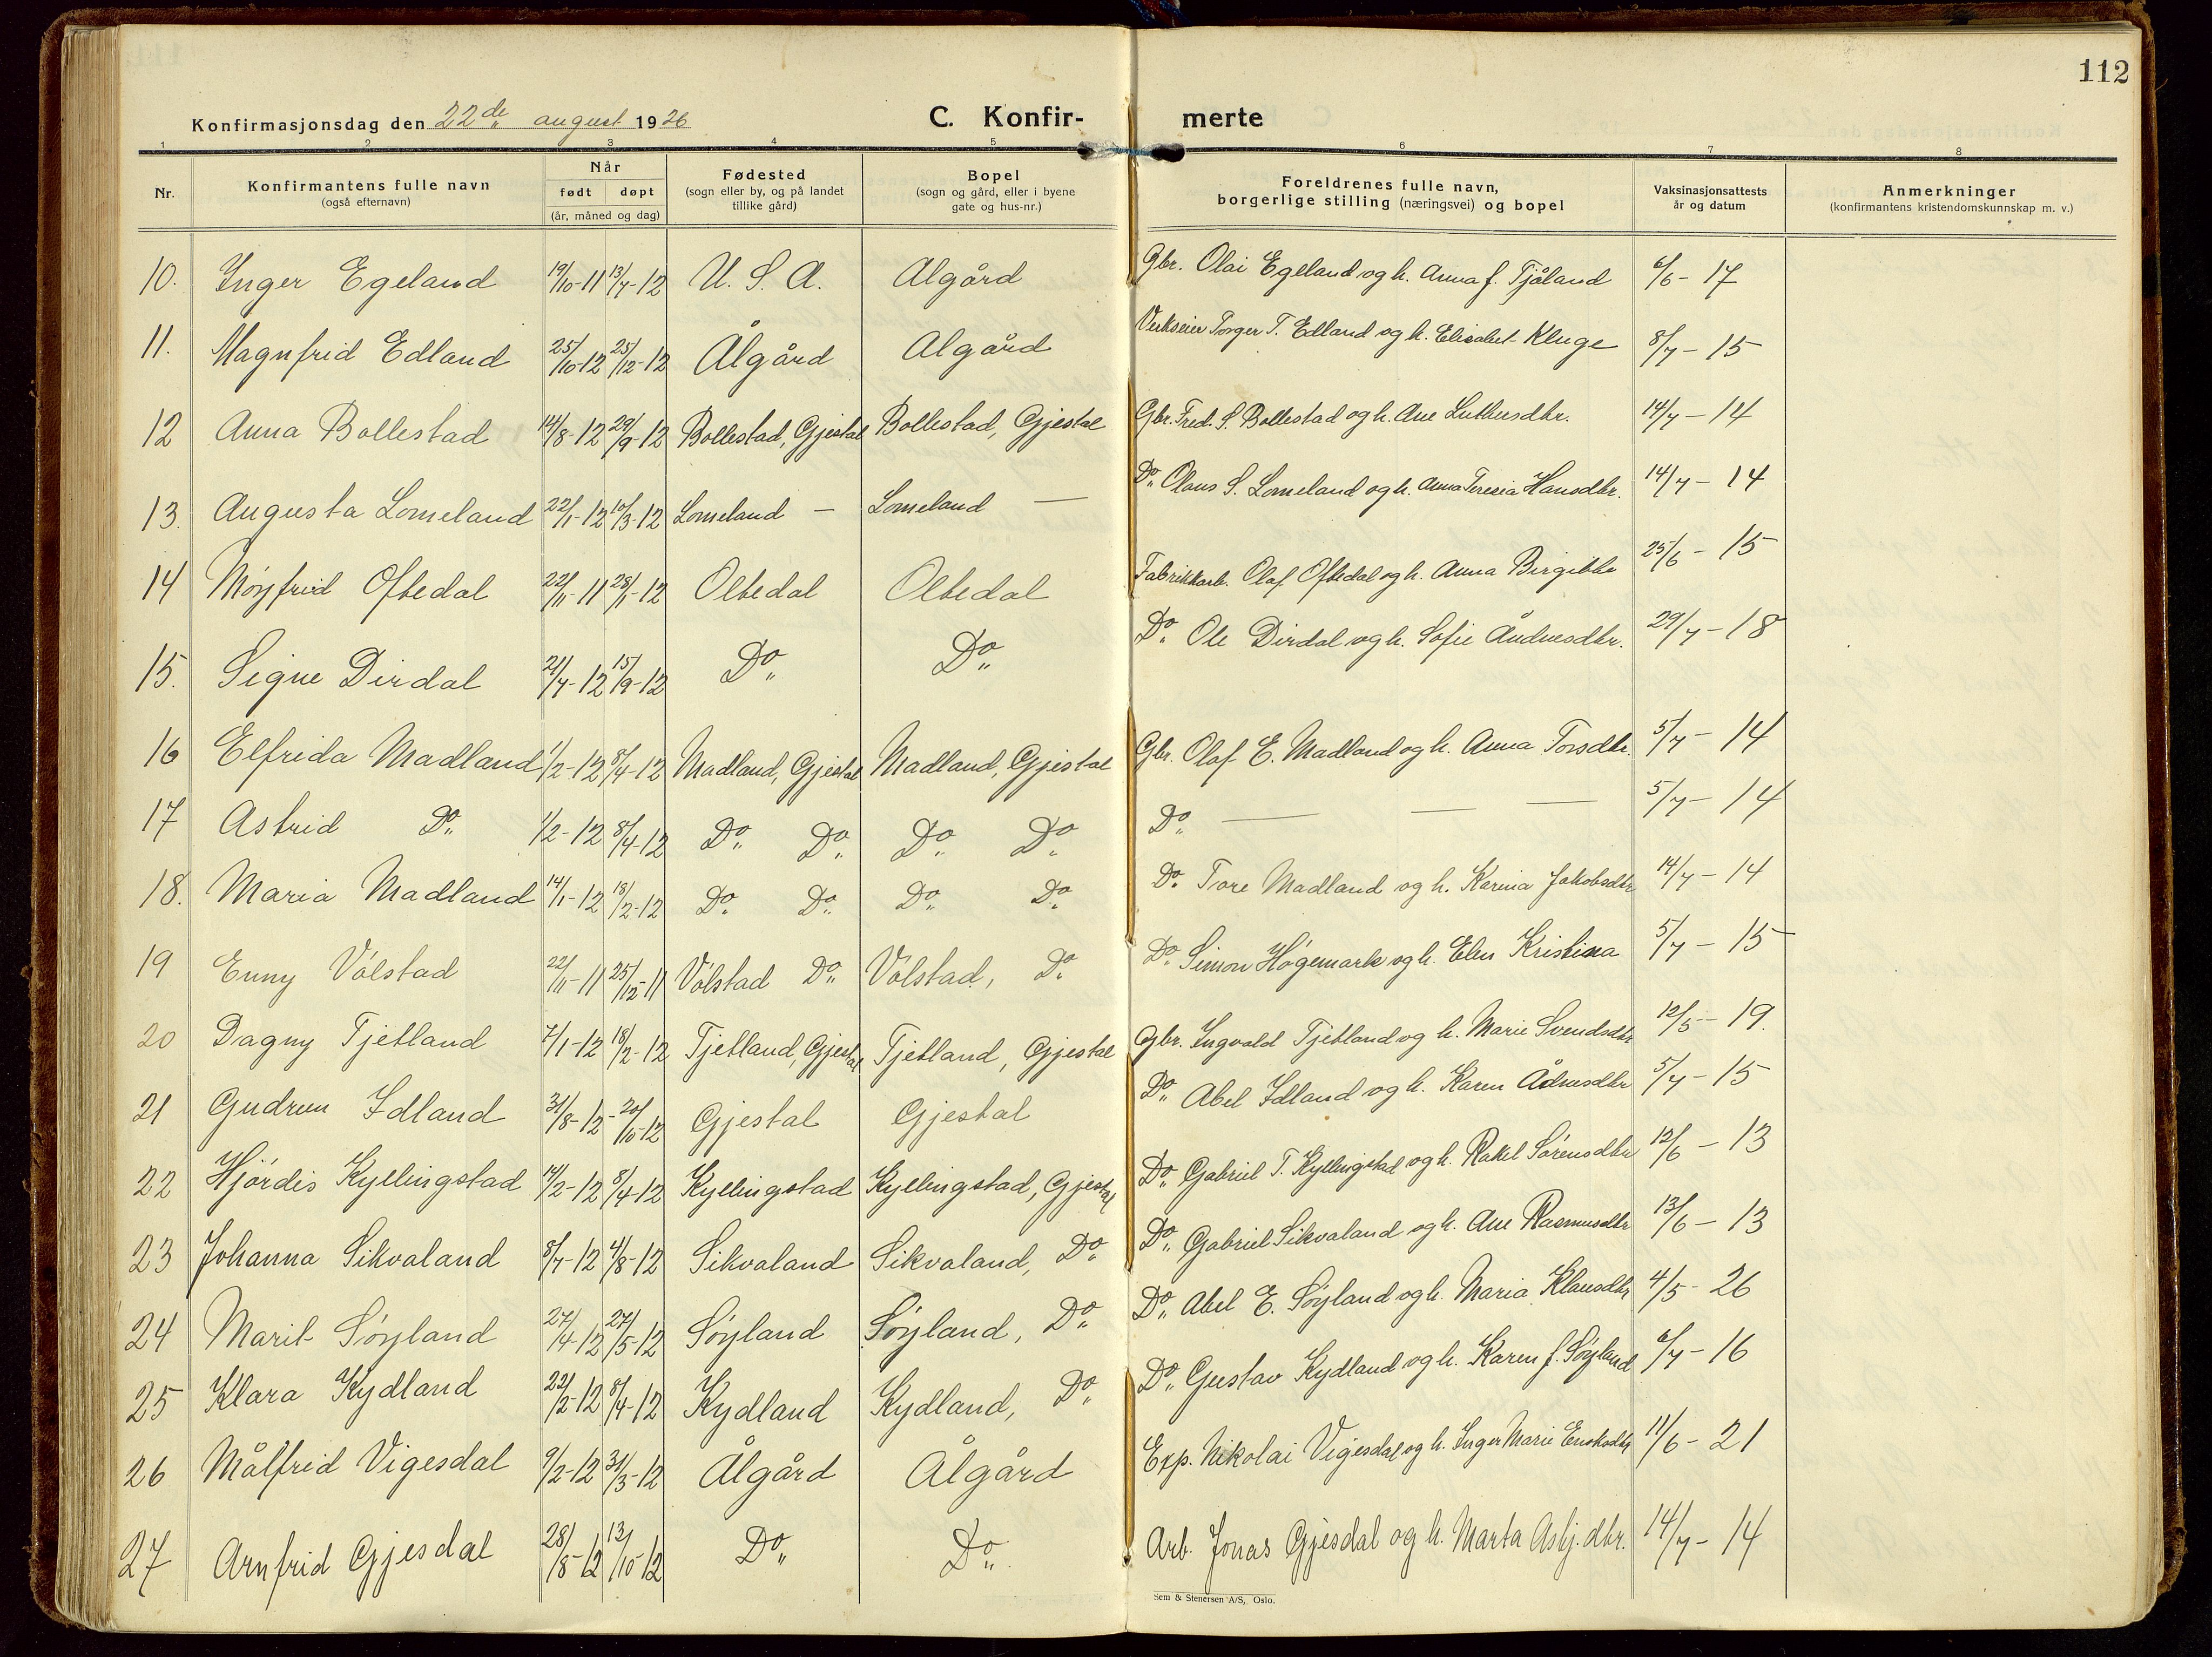 112
Konfirmasjonsdag den 22de august 1926 C. Konfir- merte
1 2 3 4 5 6 7 8
Nr. Konfirmantens fulle navn (også efternavn) Når født døpt (år, måned og dag) Fødested (sogn eller by, og på landet tillike gård) Bopel (sogn og gård, eller i byene gate og hus-nr.) Foreldrenes fulle navn, borgerlige stilling (næringsvei) og bopel Vaksinasjonsattests år og datum Anmerkninger (konfirmantens kristendomskunnskap m. v.)
10. Inger Egeland 19/10-11 13/7-12 U. S. A. Algård Gbr. Olai Egeland og h. Anna f. Tjåland 6/6 - 17
11. Magnfrid Edland 25/10-12 25/12-12 Ålgård Algård Verkseier Torger T. Edland og h. Elisabet Kluge 8/7 - 15
12 Anna Bollestad 14/8-12 29/9-12 Bollestad, Gjestal Bollestad, Gjestal Gbr. Fred. S. Bollestad og h. Ane Luthersdtr. 14/7 - 14
13. Augusta Lomeland 22/1-12 10/3-12 Lomeland — Lomeland — Do. Olaus S. Lomeland og h. Anna Teresia Hansdtr. 14/7 - 14
14 Móyfrid Oftedal 22/11-11 28/1-12 Oltedal Oltedal Fabrikkarb. Olaf Oftedal og h. Anna Birgitte 25/6 - 15
15. Signe Dirdal 21/7-12 15/9-12 Do Do Do Ole Dirdal og h. Sofie Åndresdtr. 29/7 - 18
16 Elfrida Madland 1/2-12 8/4-12 Madland, Gjestal Madland, Gjestal Gbr. Olaf E. Madland og h. Anna Torsdtr. 5/7 - 14
17 Astrid Do 1/2-12 8/4-12 Do Do Do Do Do — — — 5/7 - 14
18. Maria Madland 14/1-12 18/2-12 Do Do Do Do Do. Tore Madland og h. Karina Jakobsdtr 14/7 - 14
19 Enny Vólstad 22/11-11 25/12-11 Vólstad Do Vólstad, Do Do. Simon Hógemark og h. Elen Kristina 5/7 - 15
20 Dagny Tjetland 7/1-12 18/2-12 Tjetland, Gjestal Tjetland, Gjestal Gbr. Ingvald Tjetland og h. Marie Svendsdtr 12/5 - 19.
21 Gudrun Idland 31/8-12 - 20/10-12 Gjestal Gjestal Do Abel Idland og h. Karen Ådnesdtr 5/7 - 15
22 Hjórdis Kyllingstad 14/2-12 8/4-12 Kyllingstad Kyllingstad, Gjestal Do Gabriel T. Kyllingstad og h. Rakel Sórensdtr 12/6 - 13
23 Johanna Sikvaland 8/7-12 4/8-12 Sikvaland Sikvaland, Do Do Gabriel Sikvaland og h. Ane Rasmusdtr 13/6 - 13
24 Marit Sóyland 27/4-12 27/5-12 Sóyland Sóyland, Do Do Abel E. Sóyland og h. Maria Klausdtr 4/5 - 26
25 Klara Kydland 22/2-12 8/4-12 Kydland Kydland, Do Do Gustav Kydland og h. Karen f. Sóyland 6/7 - 16
26 Målfrid Vigesdal 9/2-12 31/3-12 Ålgård Ålgård Exp. Nikolai Vigesdal og h. Inger Marie 11/6 - 21
27 Arnfrid Gjesdal 28/8-12 13/10-12 Do Do Arb. Jonas Gjesdal og h. Marta Asbj.dtr. 14/7 - 14
Sem & Stenersen A/S, Oslo.